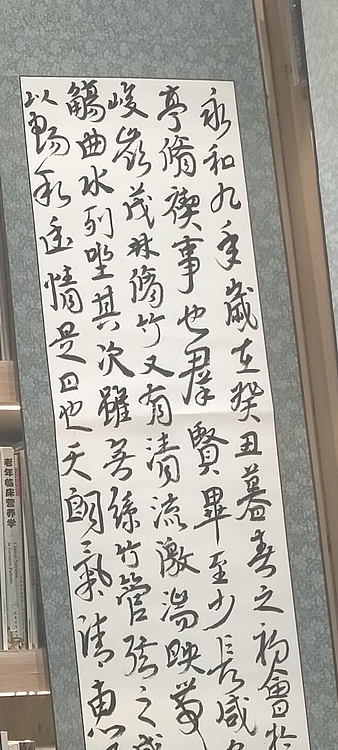 永和九年歲在癸丑暮春之初會於
亭脩禊事也群賢畢至少長咸
峻嶺茂林脩竹又有清流激湍映帶
觴曲水列坐其次雖無絲竹管弦之盛
以暢敘幽情是日也天朗氣清惠
老年临床营养学